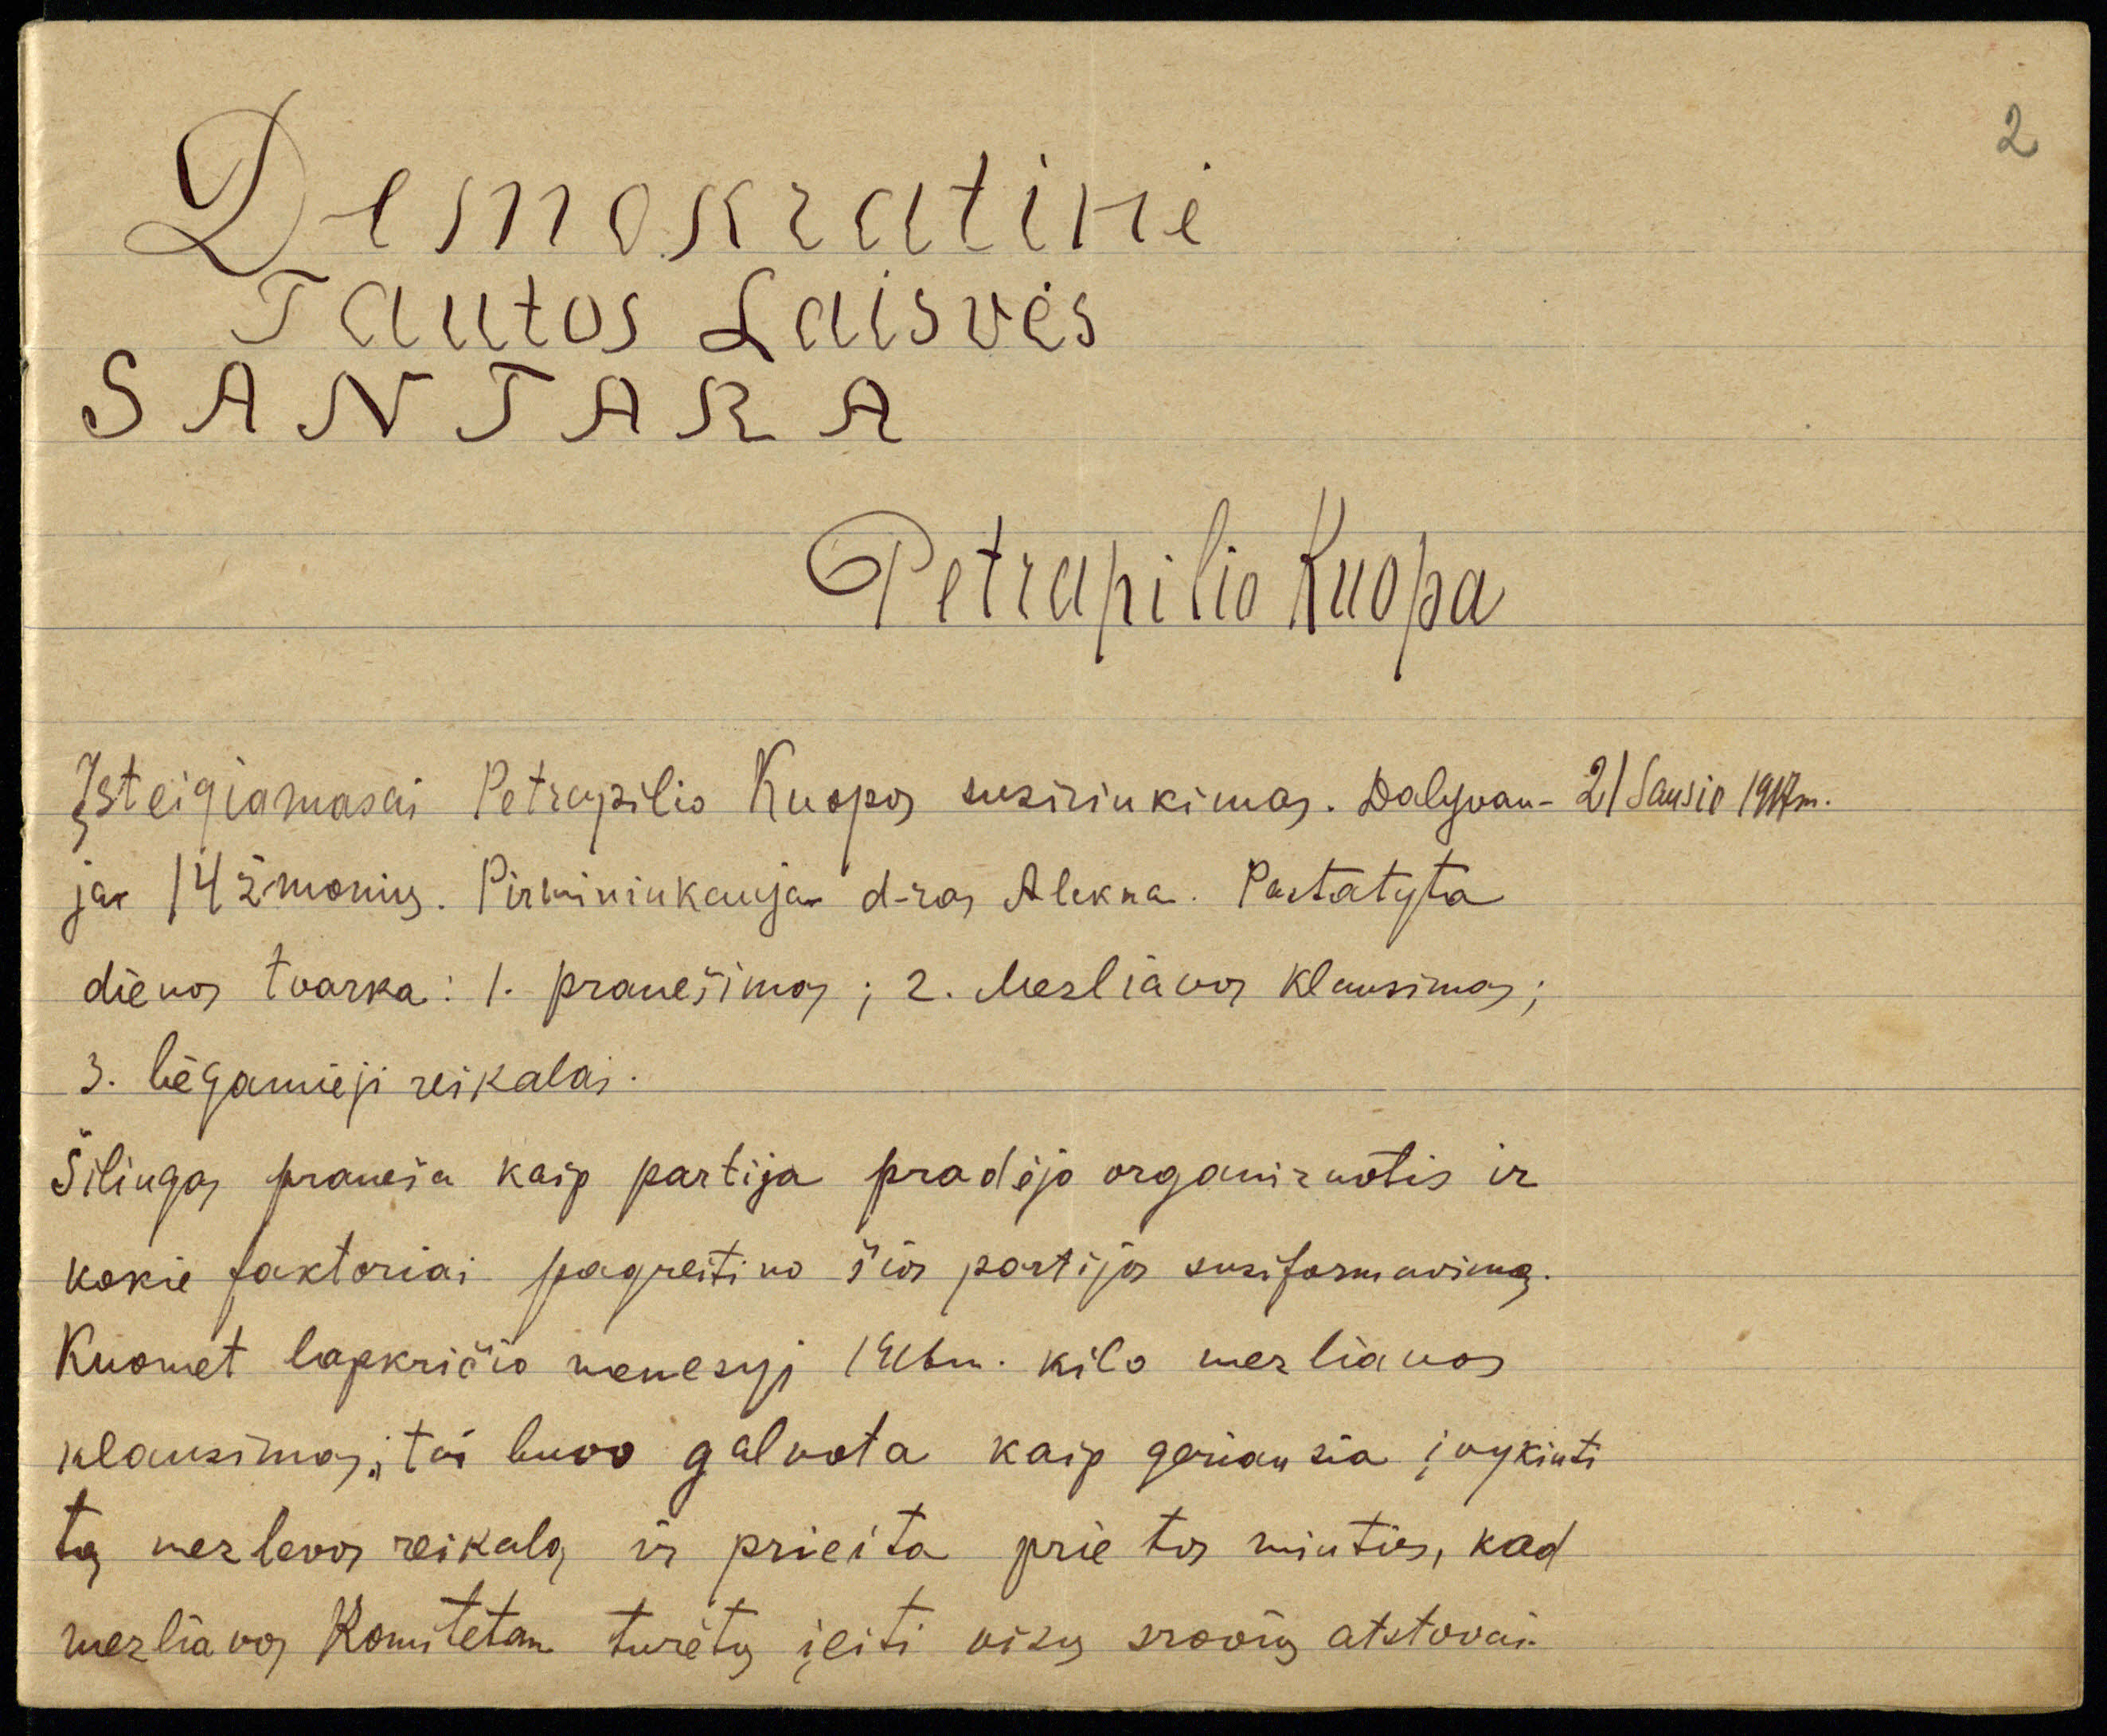 2
Demokratinė
Tautos Laisvės
SANTARA
Petrapilio Kuopa
Įsteigiamasai Petrapilio Kuopos susirinkimas. Dalyvau- 21 Sausio 1917 m.
ja 14 žmonių. Pirmininkauja d-ras Alekna. Pastatyta
dienos tvarka: 1. pranešimas; 2. Mezliavos klausimas;
3. bėgamieji reikalai.
Šilingas praneša kaip partija pradėjo organizuotis ir
kokie faktoriai pagreitino šios partijos susiformavimą.
Kuomet lapkričio menesyj 1916 m. kilo mezliavos
klausimas, tai buvo galvota kaip geriausia įvykinti
tą mezlevos reikalą ir prieita prie tos minties, kad
mezliavos Komitetan turėtų įeiti visų srovių atstovai.